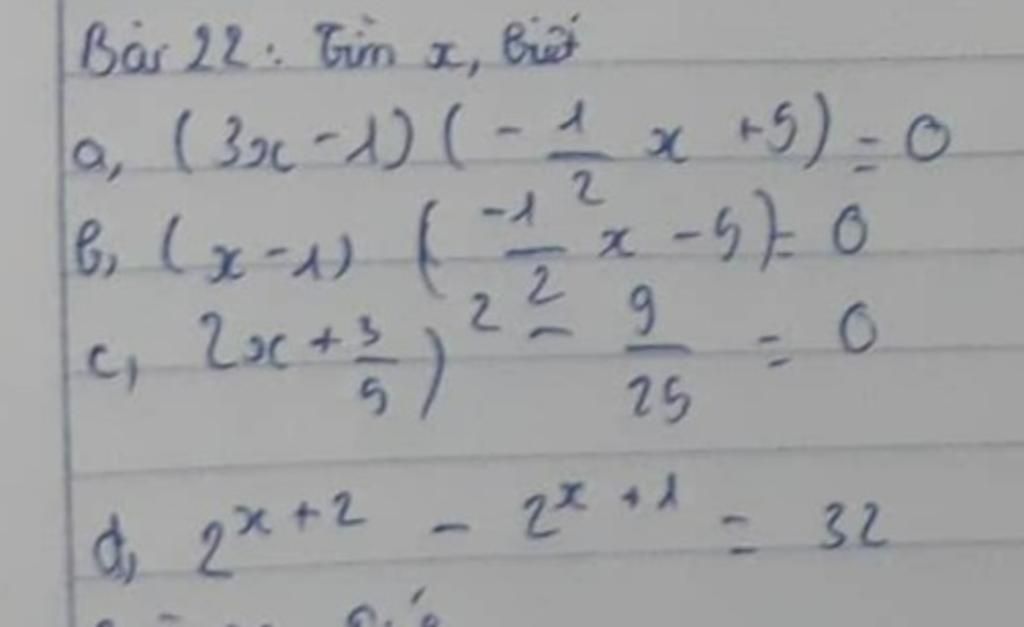 Bài 22: Tìm x, biết
a, (3x - 1) (- 1/2 x + 5) = 0
b, (x - 1) (-1/2 x - 5) = 0
c, 2x + 3/5)² - 9/25 = 0
d, 2^{x+2} - 2^{x+1} = 32